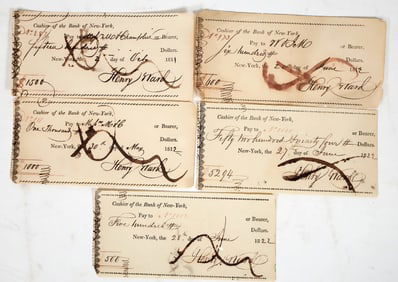 Cashier of the Bank of New-York,
Pay to
or Bearer,
Fifteen hundred
Dollars.
New-York, the day of July
1500
Henry Ward
Cashier of the Bank of New-York,
Pay to
or Bearer,
Six hundred
Dollars.
New-York, the day of June
600
Henry Ward
Cashier of the Bank of New-York,
or Bearer,
One Thousand
Dollars.
New-York, the 30th May, 1822
1000
Henry Ward
Cashier of the Bank of New-York,
Pay to
or Bearer,
Fifty two hundred & ninety four
Dollars.
New-York, the 27 day of June 1822
5294
Henry Ward
Cashier of the Bank of New-York,
Pay to
or Bearer,
Five hundred
Dollars.
New-York, the 28 day of June 1822
500
Henry Ward